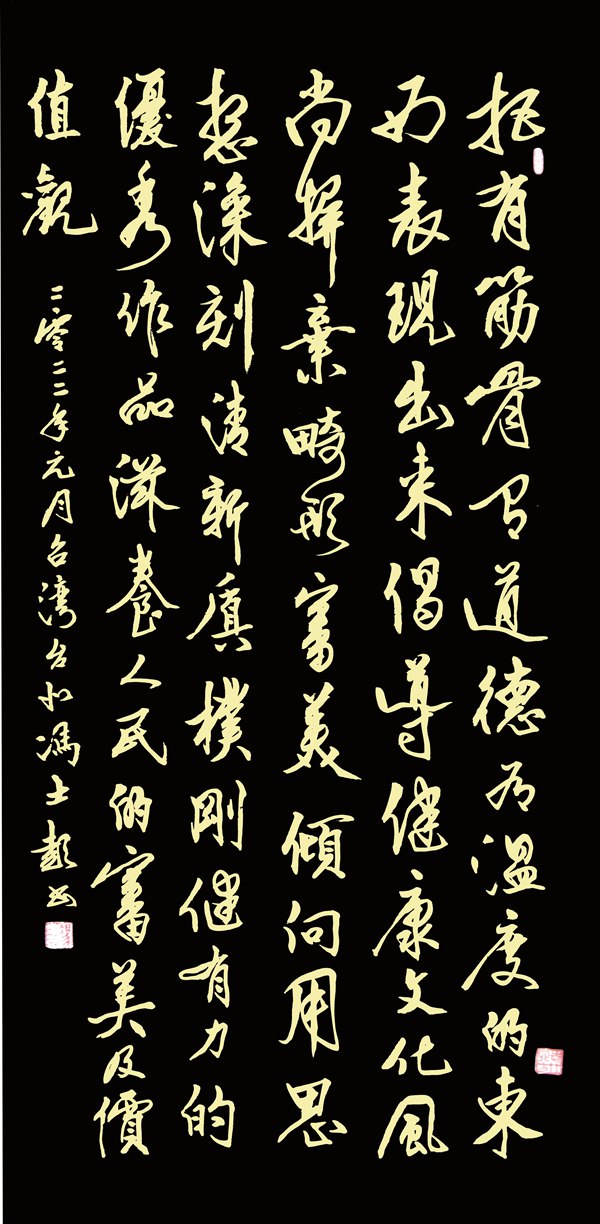 把有筋骨有道德有溫度的東
西表現出来倡導健康文化風
尚摒棄畸形審美傾向用思
想深刻清新真樸剛健有力的
優秀作品滋養人民的審美及價
值觀
二零二二年元月台湾台北馮士彭书